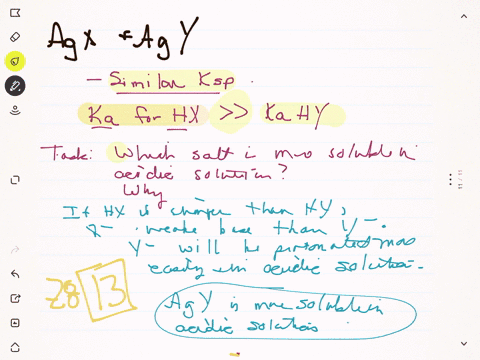 AgX + AgY
- Similar Ksp.
Ka for HX >> Ka HY
Task: Which salt is more soluble in
acidic solution?
Why
If HX is stronger than HY,
X- weake base than Y-.
Y- will be protonated more
easily in acidic solution.
Z8 13
AgY is more soluble in
acidic solutions
11 / 11